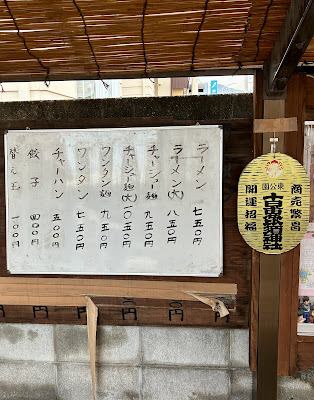 ラーメン 七五〇円
ラーメン(大) 八五〇円
チャーシュー麺 九五〇円
チャーシュー麺(大) 一〇五〇円
ワンタン麺 九五〇円
ワンタン 七五〇円
チャーハン 五〇〇円
餃子 四〇〇円
替え玉 一〇〇円
東公園
商売繁昌
十日恵比須神社
開運招福